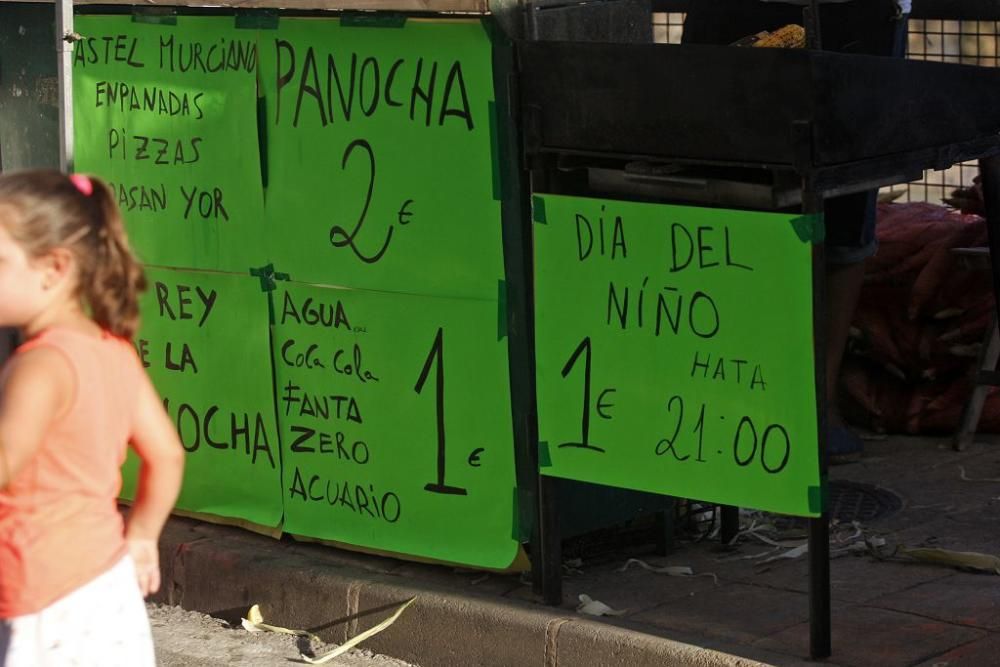 ASTEL MURCIANO
ENPANADAS
PIZZAS
ASAN YOR
PANOCHA
2€
REY
E LA
NOCHA
AGUA
COCA COLA
FANTA
ZERO
ACUARIO
1€
DÍA DEL
NIÑO
1€
HATA
21:00